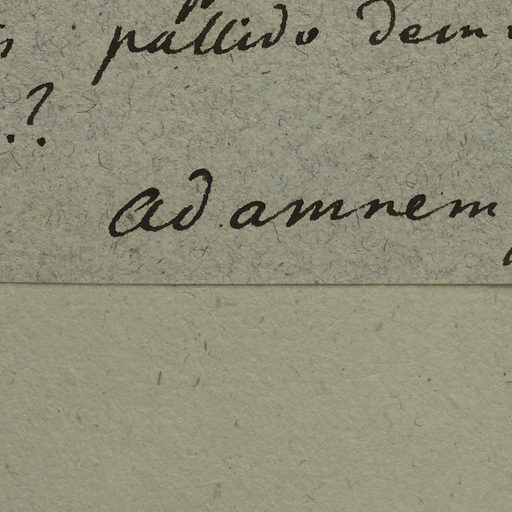 pallido dem
.?
Ad amnem